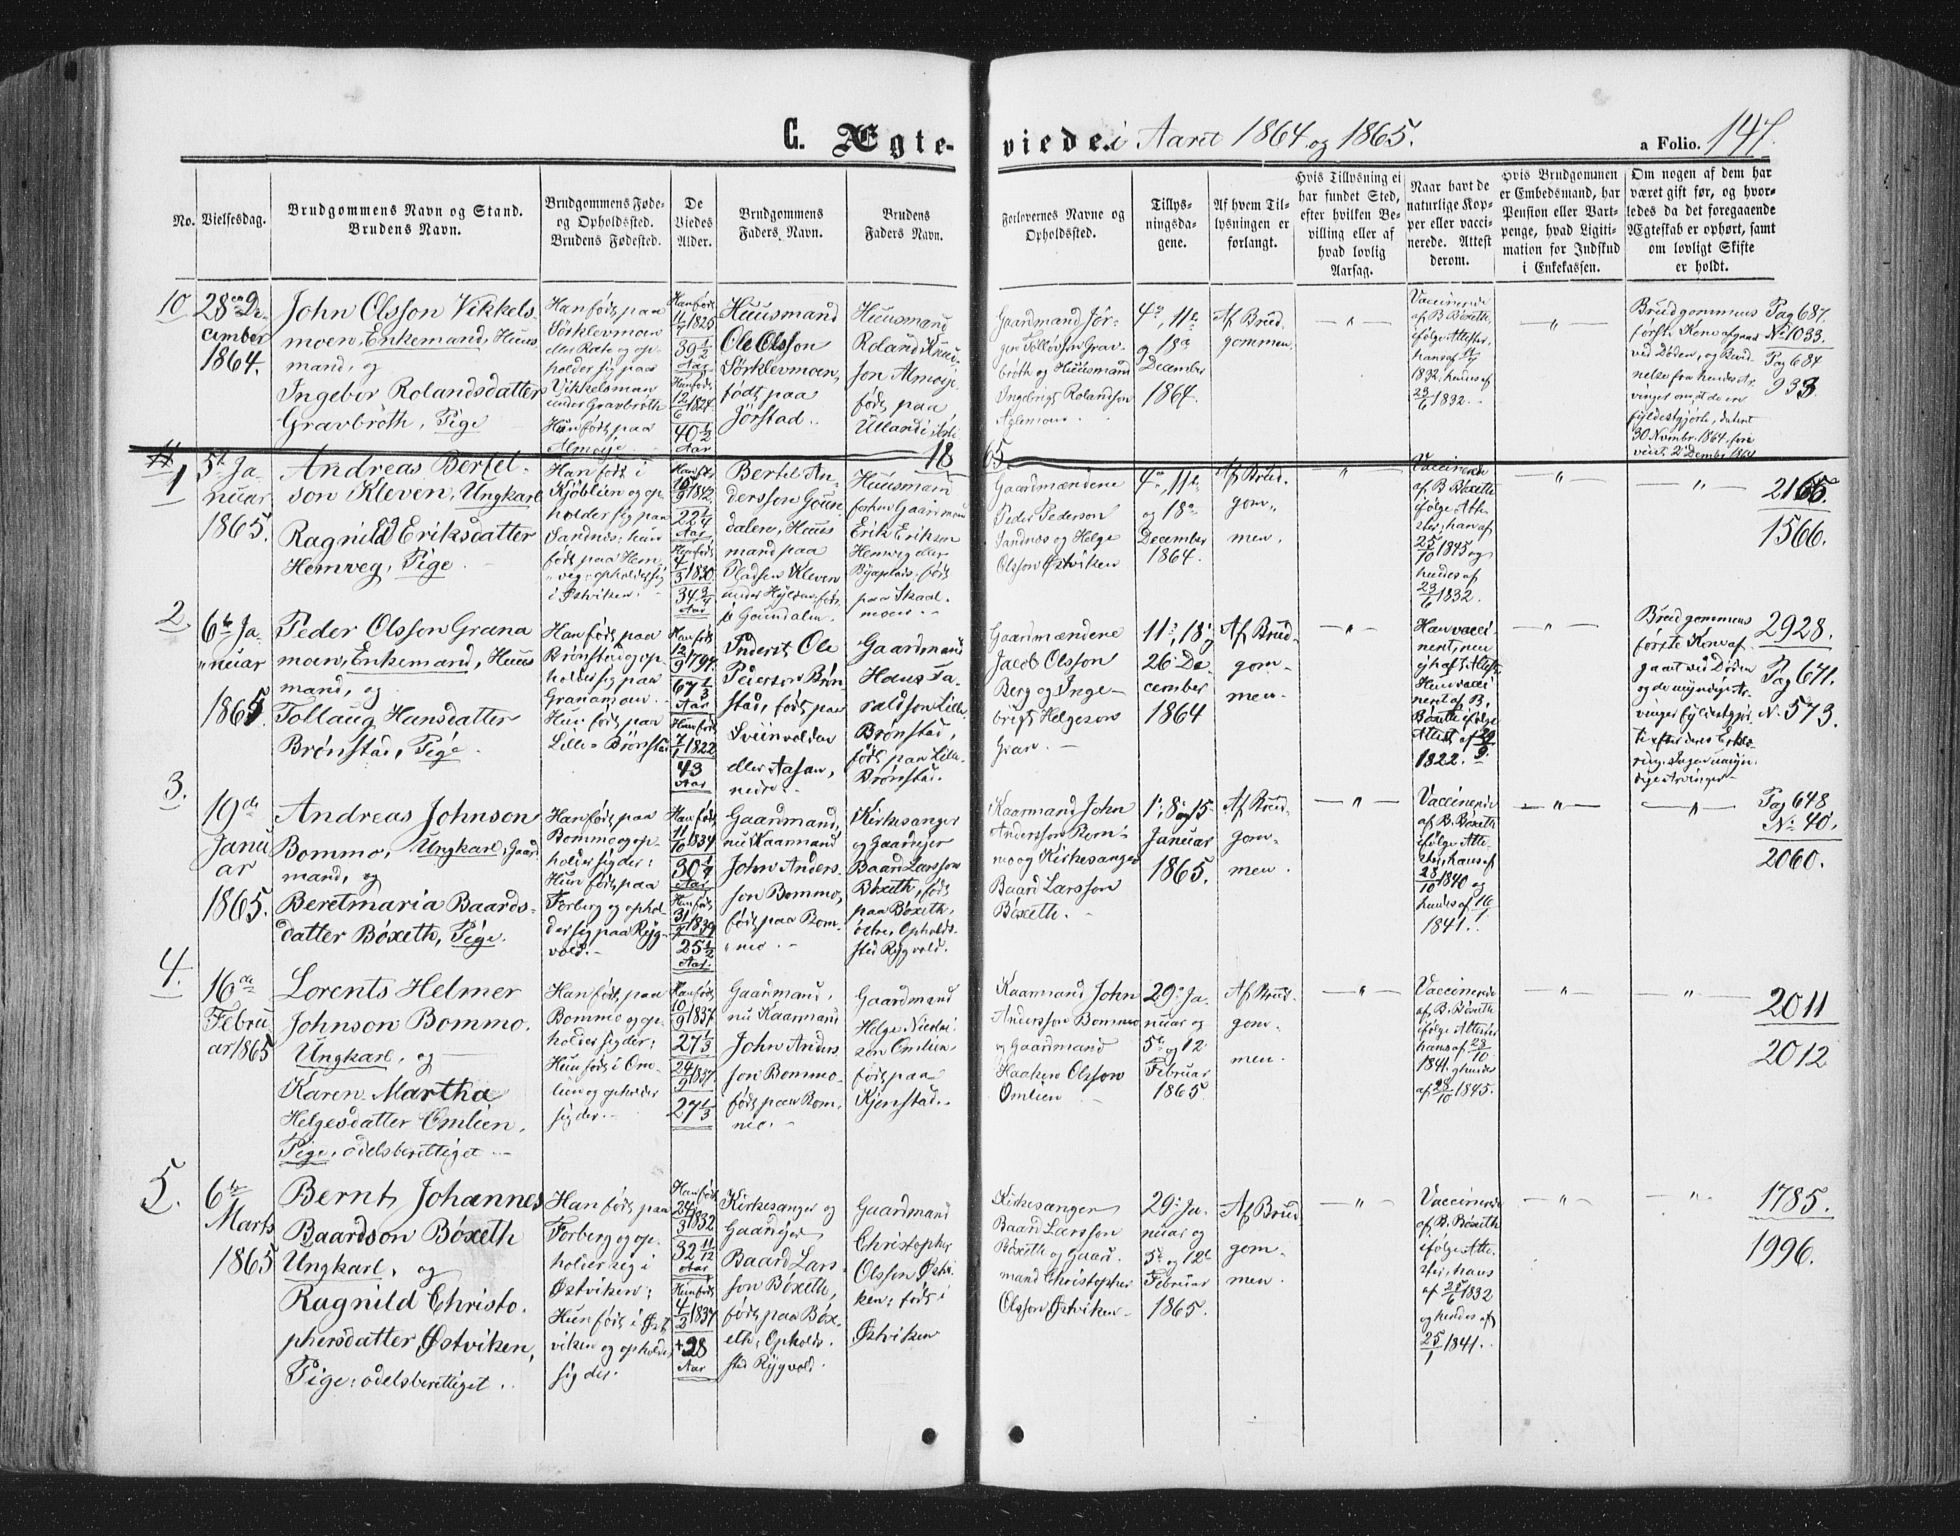 C. Ægteviede. i Aaret 1864 og 1865.
a Folio. 147.
No.
Vielsesdag.
Brudgommens Navn og Stand.
Brudens Navn.
Brudgommens Føde-
og Opholdssted.
Brudens Fødested.
De
Viedes
Alder.
Brudgommens
Faders Navn.
Brudens
Faders Navn.
Forlovernes Navne og
Opholdssted.
Tillys-
ningsda-
gene.
Af hvem Til-
lysningen er
forlangt.
Hvis Tillysning ei
har fundet Sted,
efter hvilken Be-
villing eller af
hvad lovlig
Aarsag.
Naar havt de
naturlige Kop-
per eller vacci-
nerede. Attest
derom.
Hvis Brudgommen
er Embedsmand, har
Pension eller Vart-
penge, hvad Legiti-
mation for Indskud
i Enkekassen.
Om nogen af dem har
været gift før, og hvor-
ledes da det foregaaende
Ægteskab er ophørt, samt
om lovligt Skifte
er holdt.
10
28de De-
cember
1864.
John Olsson Vikkels-
moen, Enkemand, Huus
mand, og
Ingebor Rolandsdatter
Gravbrøth, Pige
Han født paa
Sørklevmoen
holder sig paa
Vikkelsmoen
under Gravbrøth
Hun født paa
Almoeje
Han født
11/9 1825
39 1/2
Aar
Hun født
12/6 1824
40 1/2
Aar
Huusmand
Ole Olsson
Sørklevmoen,
født paa
Jørstad.
Huusmand
Roland Knud-
son Almoeje
født paa
Gaardmand Jør-
gen Tollovson Grav-
brøth og Huusmand
Ingebrigt Rolandson
4de, 11te
og 18de
December
1864.
Af Brud
gommen.
Vaccinerede
af B. Bøxeth,
ifølge Attester,
hans af
1832, hendes af
23/6 1832.
Brudgommens
første Kone afgaaet
ved Døden, og Bevid-
nelse fra hendes Ar-
vinger om at de ere
fyldestgjorte, dateret
30 Novmbr. 1864, fore
viist 2 Dcembr 1864
Pag 687.
No 1033.
Pag 684
933
1865.
1
5te Ja-
nuar
1865.
Andreas Bertel-
son Kleven, Ungkarl
Ragnild Eriksdatter
Hemveg, Pige.
Han født i
Kjøblien og op-
holder sig paa
Sandnes; hun
født paa Hem-
veg; opholder sig
i Østviken.
Han født
1842.
22 1/4
Aar
Hun født
4/3 1830
34 3/4
Aar
Bertel An-
dersson Gouns-
dalen, Huus
mand paa
Pladsen Kleven
under Hylden, født
i Goundalen.
Huusmand
forhen Gaardmand
Erik Erikson
Hemveg eller
Byaplads, født
paa Skaal-
moen.
Gaardmændene
Peder Pederson
Sandnes og Helge
Olsson Østviken
4de, 11te
og 18de
December
1864.
Af Brud
gom-
men.
Vaccinerede
af B. Bøxeth
ifølge Atte-
ster, hans af
25/10 1845 og
hendes af
23/6 1832.
2165
1566.
2.
6te Ja-
nuar
1865
Peder Olsson Grana
moen, Enkemand, Huus
mand, og
Tollaug Hansdatter
Brønstad, Pige.
Han født paa
Brønstad og op-
holder sig paa
Granamoen.
Hun født paa
Lille-Brønstad
Han født
12/9 1797.
67 1/3
Aar
Hun født
7/1 1822
43
Aar
Inderst Ole
Pederson Brøn-
stad, født paa
Sviinvolden
eller Aasan,
nedre.
Gaardmand
Hans Ta-
raldson Lille
Brønstad,
født paa Lille
Brønstad.
Gaardmændene
Jacob Olsson
Berg og Inge-
brigt Helgeson
Gran.
11te, 18de og
26de De
cember
1864
Af Brud-
gom-
men
Han vacci
neret, men
ej haft Attest.
Hun vacci
neret af B.
Bøxeth ifølge
Attest af 29/9
1822.
Brudgommens
første Kone af-
gaaet ved Døden
og de myndige Ar-
vinger fyldestgjor-
te efter deres Erklæ-
ring. Ingen umyn-
dige Arvinger
2928.
Pag 641.
No. 573.
3.
19de
Janu
ar
1865.
Andreas Johnson
Bommo, Ungkarl, Gaard
mand, og
Beretmaria Baards-
datter Bøxeth, Pige.
Han født paa
Bommo og op-
holder sig der;
Hun født paa
Forberg og ophol-
der sig paa Ryg-
vold.
Han født
11/10 1834
30 1/4
Aar
Hun født
31/7 1839
25 1/2
Aar.
Gaardmand,
nu Kaarmand
John Anders
son Bommo,
født paa Bom-
mo.
Kirkesanger
og Gaardejer
Baard Larsson
Bøxeth, født
paa Bøxeth,
østre, Opholds-
sted Rygvold.
Kaarmand John
Andersson Bom-
mo og Kirkesanger
Baard Larsson
Bøxeth.
1ste, 8de og 15
Januar
1865.
Af Brud-
gom-
men.
Vaccinerede
af B. Bøxeth
ifølge Atte-
ster, hans af
28/10 1840 og
hendes af 16/1
1841.
Pag 648
No 40.
2060.
4.
16de
Febru
ar 1865
Lorents Helmer
Johnson Bommo.
Ungkarl, og
Karen Martha
Helgesdatter Omlien,
Pige, odelsberettiget
Han født paa
Bommo og op-
holder sig der;
Hun født i Om-
lien og opholder
sig der.
Han født
10/9 1837
27 1/3
24/9 1837
27 1/3
Gaardmand,
nu Kaarmand
John Anders
son Bommo
født paa Bom-
mo.
Gaardmand
Helge Nicolai
son Omlien
født paa
Kjenstad.
Kaarmand John
Andersson Bommo
og Gaardmand
Haaken Olsson
Omlien
29de Ja-
nuar og
5te og 12
Februar
1865.
Af Brud-
gom-
men
Vaccinerede
af B. Bøxeth
ifølge Attester
hans af 28/10
1841 og hendes
af 28/10 1845.
2011
2012
5.
6te
Marts
1865
Bernt Johannes
Baardson Bøxeth
Ungkarl, og
Ragnild Christo-
phersdatter Østviken,
Pige; odelsberettiget.
Han født paa
Forberg og op-
holder sig i
Østviken;
Hun født i Øst
viken og opholder
sig der.
Han født
24/3 1832
32 11/12
Aar
Hun født
4/2 1837
28
Aar
Kirkesanger og
Gaardejer
Baard Lars-
son Bøxeth,
født paa Bøx-
eth, Opholds
sted Rygvold.
Gaardmand
Christopher
Olsson Østvi-
ken; født i
Østviken
Kirkesanger
Baard Larsson
Bøxeth og Gaard-
mand Christopher
Olsson Østviken
29de Ja-
nuar og
5te og 12te
Februar
1865.
Af Brud
gom-
men.
Vaccinerede
af B. Bøxeth
ifølge Atte-
ster, hans
af 25/6 1832
og hendes af
25/1 1841.
1785.
1996.